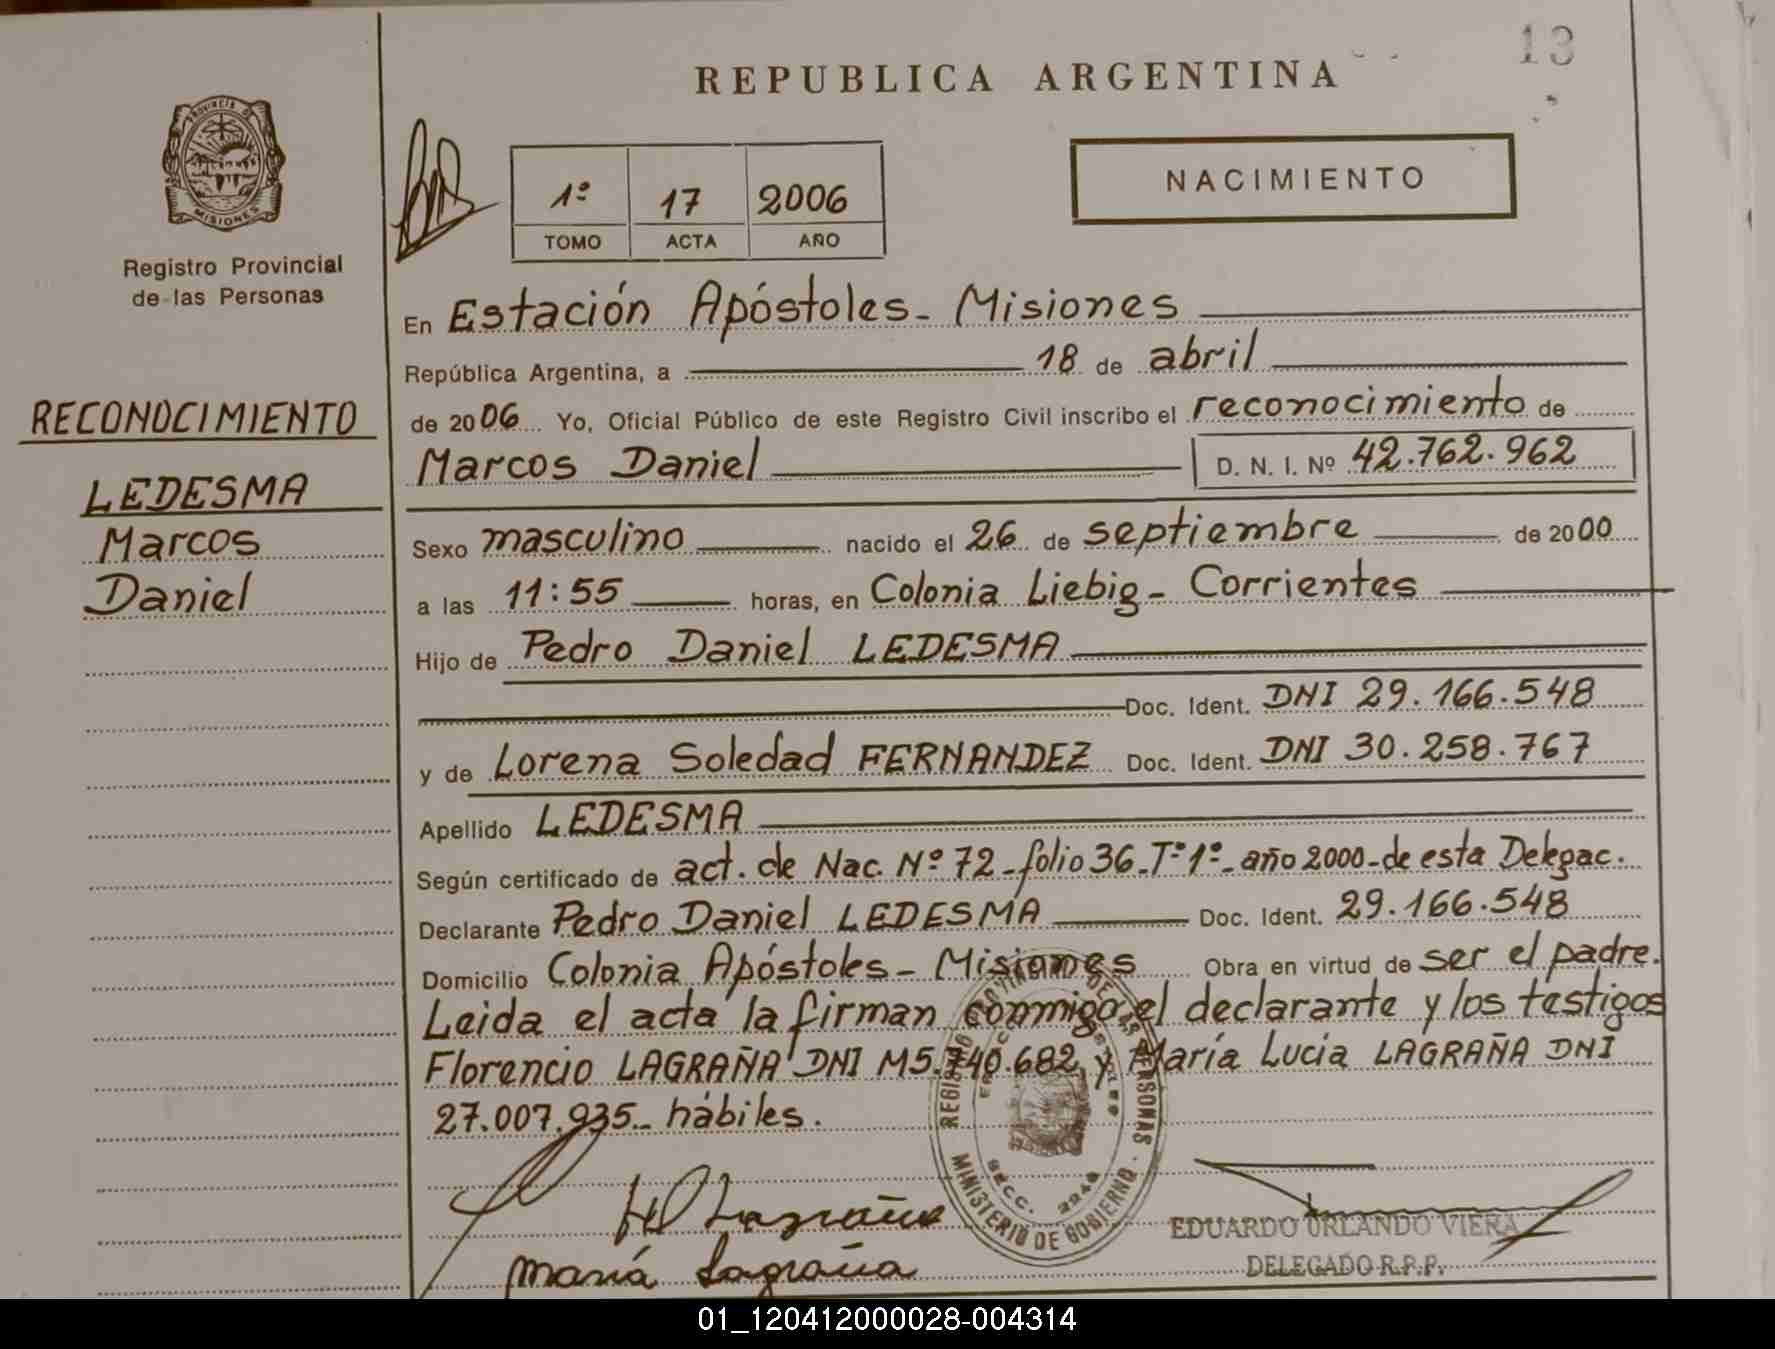 13
REPUBLICA ARGENTINA
PROVINCIA DE
MISIONES
Registro Provincial
de las Personas
1º 17 2006
TOMO ACTA AÑO
NACIMIENTO
En Estación Apóstoles - Misiones
República Argentina, a 18 de abril
de 2006 Yo, Oficial Público de este Registro Civil inscribo el reconocimiento de
Marcos Daniel D. N. I. Nº 42.762.962
RECONOCIMIENTO
LEDESMA
Marcos
Daniel
Sexo masculino nacido el 26 de septiembre de 2000
a las 11:55 horas, en Colonia Liebig - Corrientes
Hijo de Pedro Daniel LEDESMA
Doc. Ident. DNI 29.166.548
y de Lorena Soledad FERNANDEZ Doc. Ident. DNI 30.258.767
Apellido LEDESMA
Según certificado de act. de Nac. Nº 72 - folio 36 - Tº 1º - año 2000 - de esta Delegac.
Declarante Pedro Daniel LEDESMA Doc. Ident. 29.166.548
Domicilio Colonia Apóstoles - Misiones Obra en virtud de ser el padre.
Leida el acta la firman conmigo, el declarante y los testigos
Florencio LAGRAÑA DNI M5.740.682 y María Lucia LAGRAÑA DNI
27.007.935 - hábiles.
REGISTRO PROVINCIAL DE LAS PERSONAS
MINISTERIO DE GOBIERNO
SECC.
Lagraña
María Lagraña
EDUARDO ORLANDO VIERA
DELEGADO R.P.P.
01_120412000028-004314